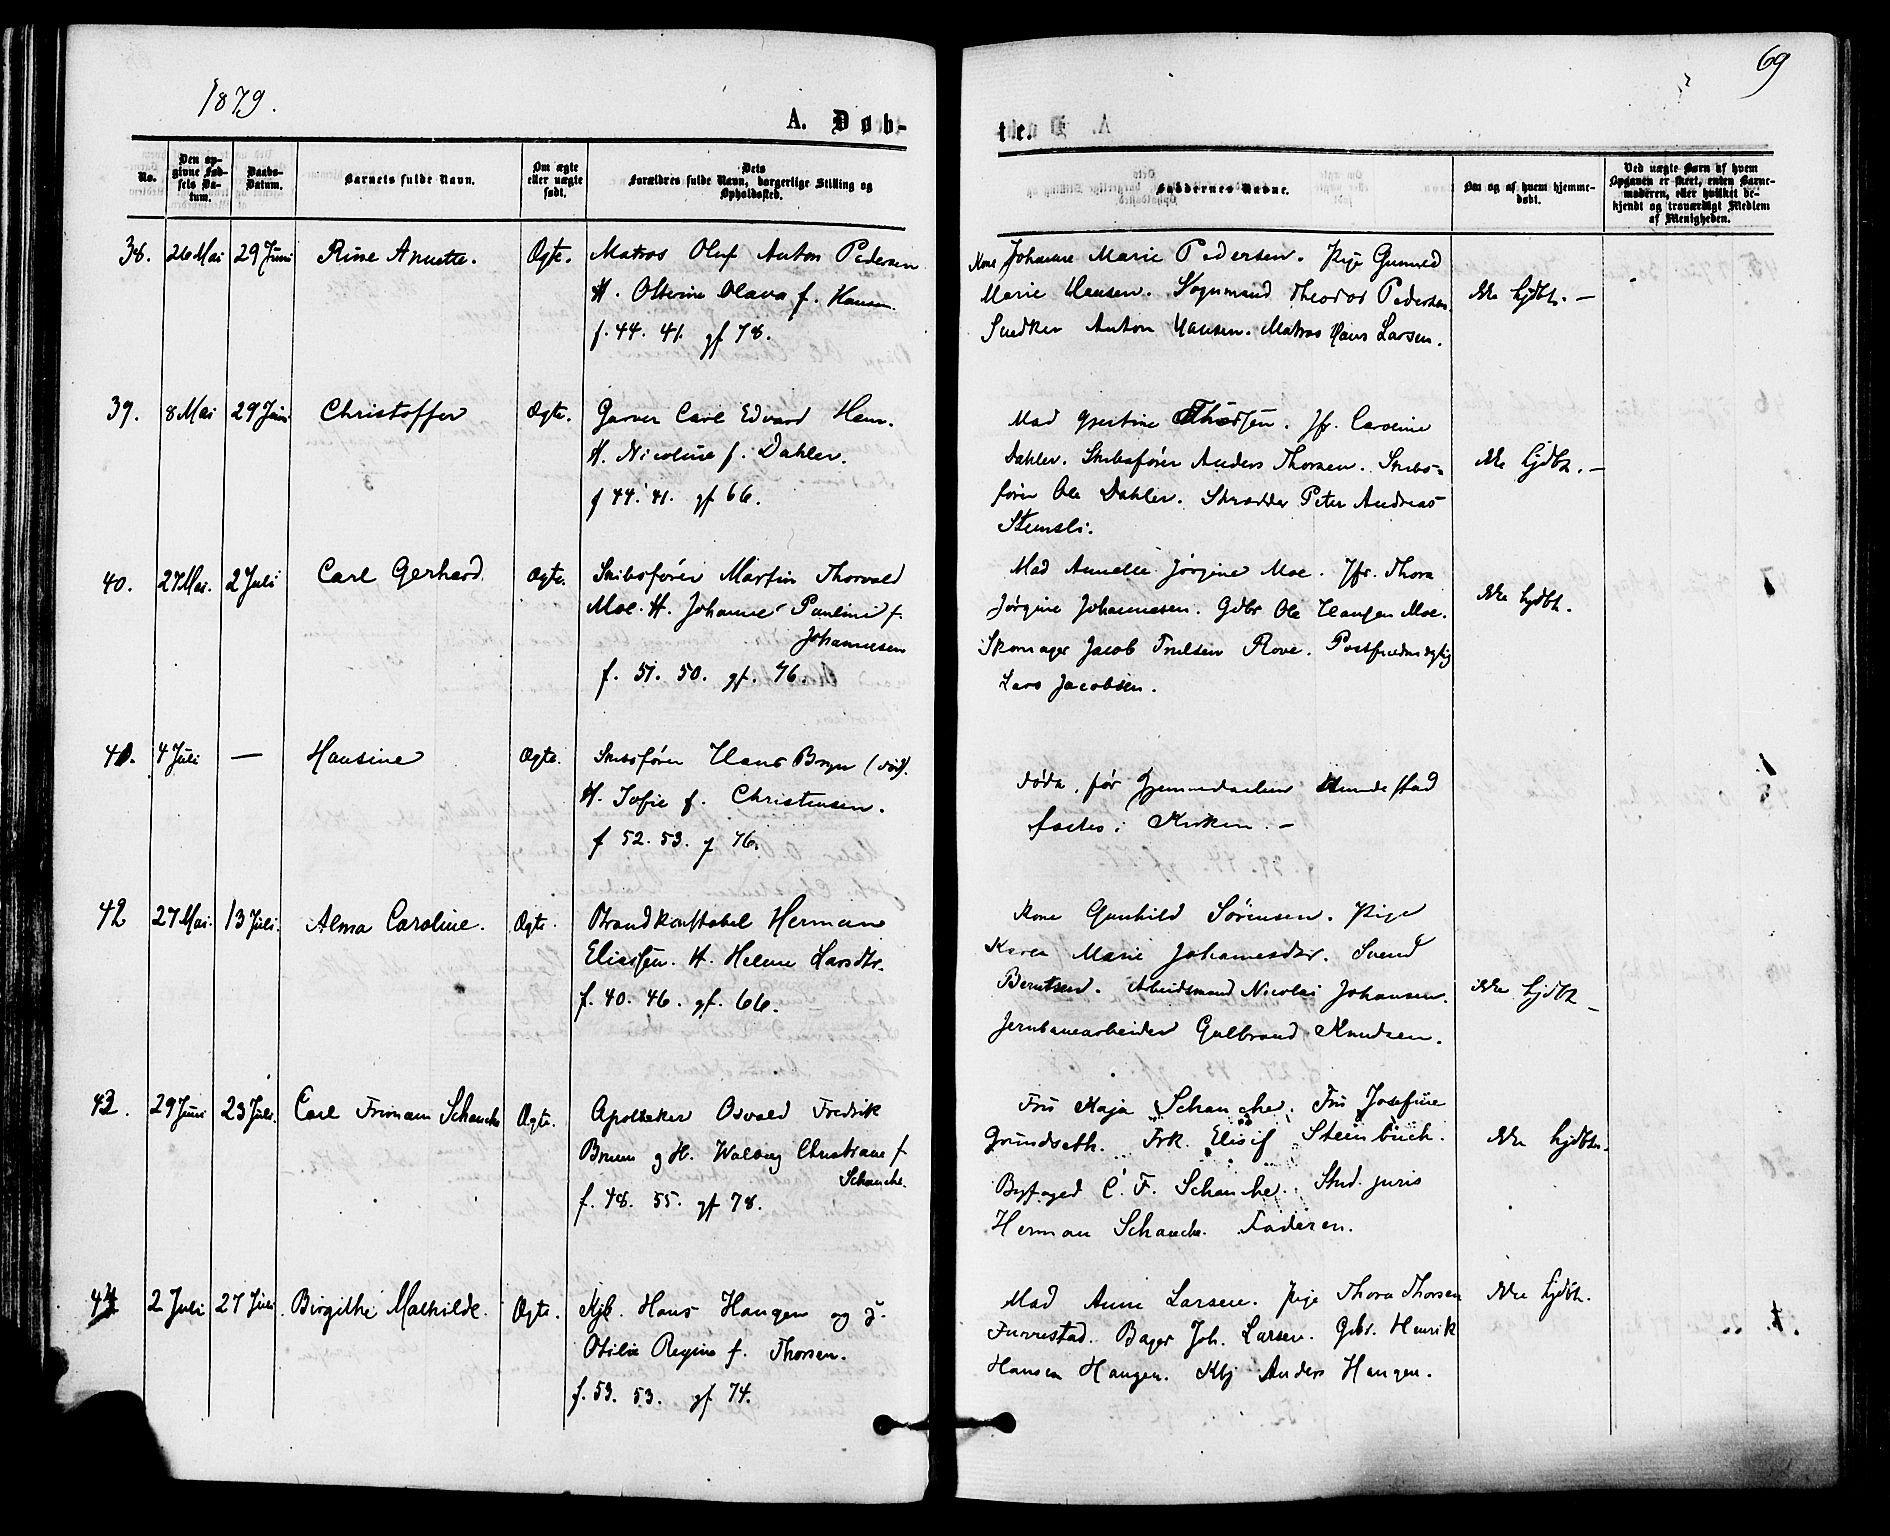 1879.
69
A. Døb-
ten
No.
Den op-
givne Fød-
sels Da-
tum.
Daabs-
Datum.
Barnets fulde Navn.
Om ægte
eller uægte
født.
Dets
Forældres fulde Navn, borgerlige Stilling og
Opholdssted.
Faddernes Navne.
Om og af hvem hjemme-
døbt.
Ved uægte Børn af hvem
Opgaven er skeet, enten Barne-
moderen, eller hvilket be-
kjendt og troværdigt Medlem
af Menigheden.
38. 26 Mai 29 Juni Rine Anette. Ægte. Matros Oluf Anton Pedersen
H. Olava f. Hansen.
f. 44. 41. gf 78.
Kone Johanne Marie Pedersen. Pige Gunild
Marie Hansen. Theodor Pedersen
Snedker Anton Hansen. Matros Hans Larsen.
Ikke hjdbt. —
39. 8 Mai 29 Juni Christoffer Ægte. Garver Carl Edvard
H. Nicoline f. Dahler.
f 44. 41. gf 66.
Mad Thorsen. Jfr. Caroline
Dahler. Skibsfører Anders Thorsen. Skibs-
fører Ole Dahler. Skrædder Peter Andreas
Ikke hjdbt. —
40. 27 Mai. 2 Juli Carl Gerhard. Ægte. Skibsfører Martin Thorvald
Moe. H. Johanne Pauline f.
Johannesen
f. 51. 50. gf. 76.
Mad Annette Jørgine Moe. Jfr. Thora
Jørgine Johannesen. Gdbr Ole Hansen Moe.
Skomager Jacob Truelsen Rove.
Lars Jacobsen.
Ikke hjdbt.
41. 4 Juli — Hansine Ægte. Skibsfører Hans Bryn (død).
H. Sofie f. Christensen.
f 52. 53. g 76.
døde, før
i Kirken. —
42 27 Mai. 13 Juli. Alma Caroline. Ægte. Strandkonstabel Herman
Eliassen. H. Helene Larsdtr.
f. 40. 46. gf. 66.
Kone Gunhild Sørensen. Pige
Karen Marie Johannesdtr. Svend
Berntsen. Arbeidsmand Nicolai Johansen.
Jernbanearbeider Gulbrand Knudsen.
Ikke hjdbt —
43. 29 Juni 23 Juli. Carl Friman Schanche Ægte. Apotheker Osvald Fredrik
Bruun og H. Walborg Christiane f
Schanche.
f. 48. 55. gf 78.
Fru Maja Schanche. Fru Josefine
Grundseth. Frk. Elisif Steinbuch.
Byfoged C. F. Schanche. Stud. juris
Herman Schanche. Faderen.
Ikke hjdbt.
44 2 Juli 27 Juli Birgithe Mathilde. Ægte. Kjb. Hans Haugen og H.
Otilie Regine f. Thorsen.
f. 53. 53. gf 74.
Mad Anne Larsen. Pige Thora Thorsen
Furrestad. Bager Joh. Larsen. Gbr. Henrik
Hansen Haugen. Kbj Anders Haugen.
Ikke hjdbt.